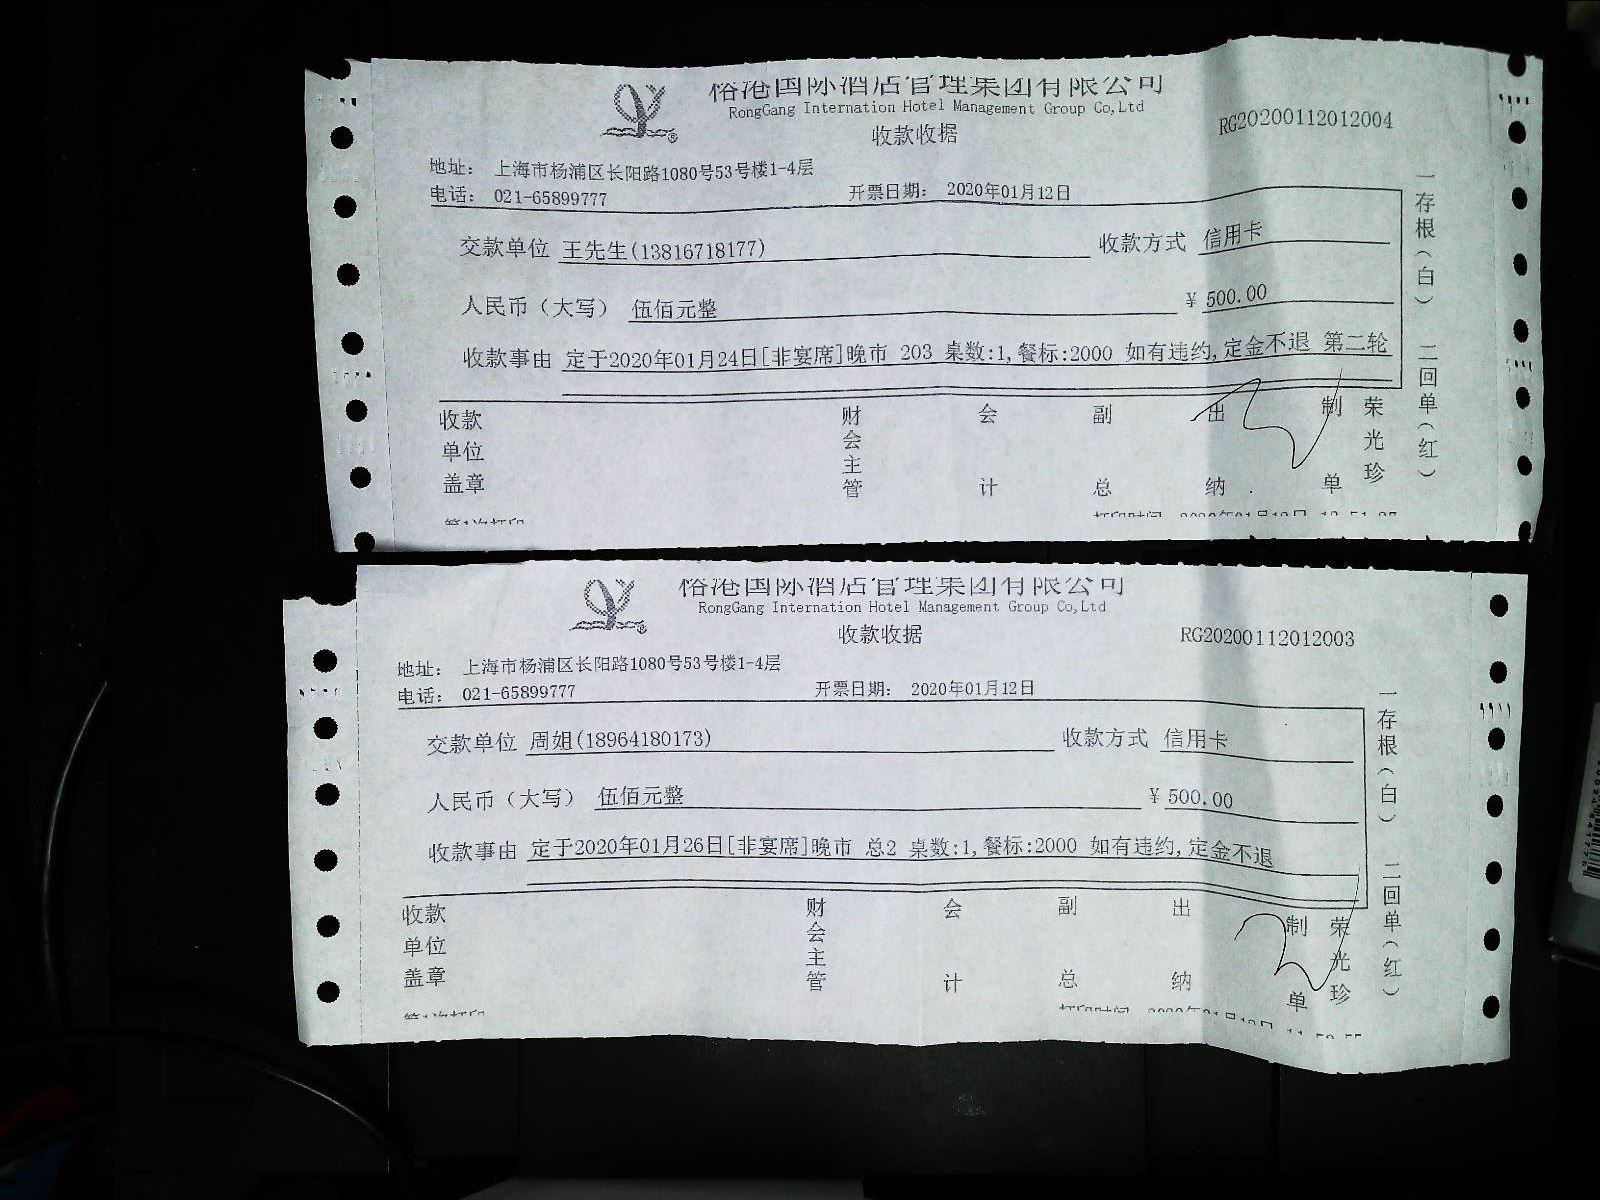 俗港国际酒店管理集团有限公司
RongGang Internation Hotel Management Group Co,Ltd
收款收据
RG20200112012004
地址: 上海市杨浦区长阳路1080号53号楼1-4层
电话: 021-65899777 开票日期: 2020年01月12日
交款单位 王先生(13816718177) 收款方式 信用卡
人民币(大写) 伍佰元整 ¥ 500.00
收款事由 定于2020年01月24日[非宴席]晚市 203 桌数:1,餐标:2000 如有违约,定金不退 第二轮
一存根(白) 二回单(红)
收款单位盖章 财会主管 会计 副总 出纳 制单 荣光珍
第1次打印
俗港国际酒店管理集团有限公司
RongGang Internation Hotel Management Group Co,Ltd
收款收据
RG20200112012003
地址: 上海市杨浦区长阳路1080号53号楼1-4层
电话: 021-65899777 开票日期: 2020年01月12日
交款单位 周姐(18964180173) 收款方式 信用卡
人民币(大写) 伍佰元整 ¥ 500.00
收款事由 定于2020年01月26日[非宴席]晚市 总2 桌数:1,餐标:2000 如有违约,定金不退
一存根(白) 二回单(红)
收款单位盖章 财会主管 会计 副总 出纳 制单 荣光珍
第1次打印